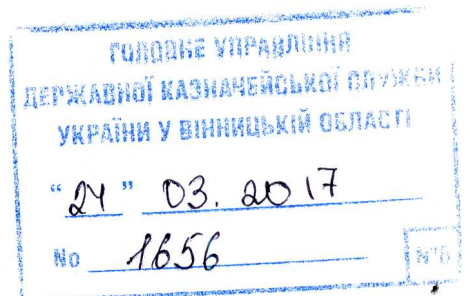 ГОЛОВНЕ УПРАВЛІННЯ
ДЕРЖАВНОЇ КАЗНАЧЕЙСЬКОЇ СЛУЖБИ
УКРАЇНИ У ВІННИЦЬКІЙ ОБЛАСТІ
"24" 03. 2017
No 1656
№6